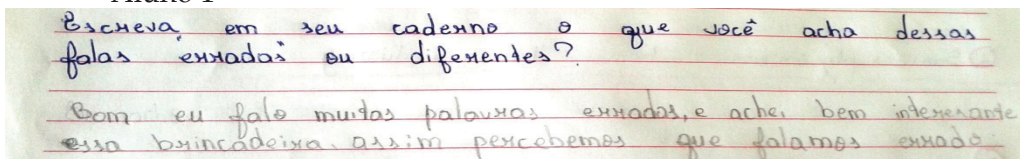 Escreva, em seu caderno o que você acha dessas
falas erradas ou diferentes?
Bom eu falo muitas palavras erradas, e achei bem interesante
essa brincadeira. assim percebemos que falamos errado